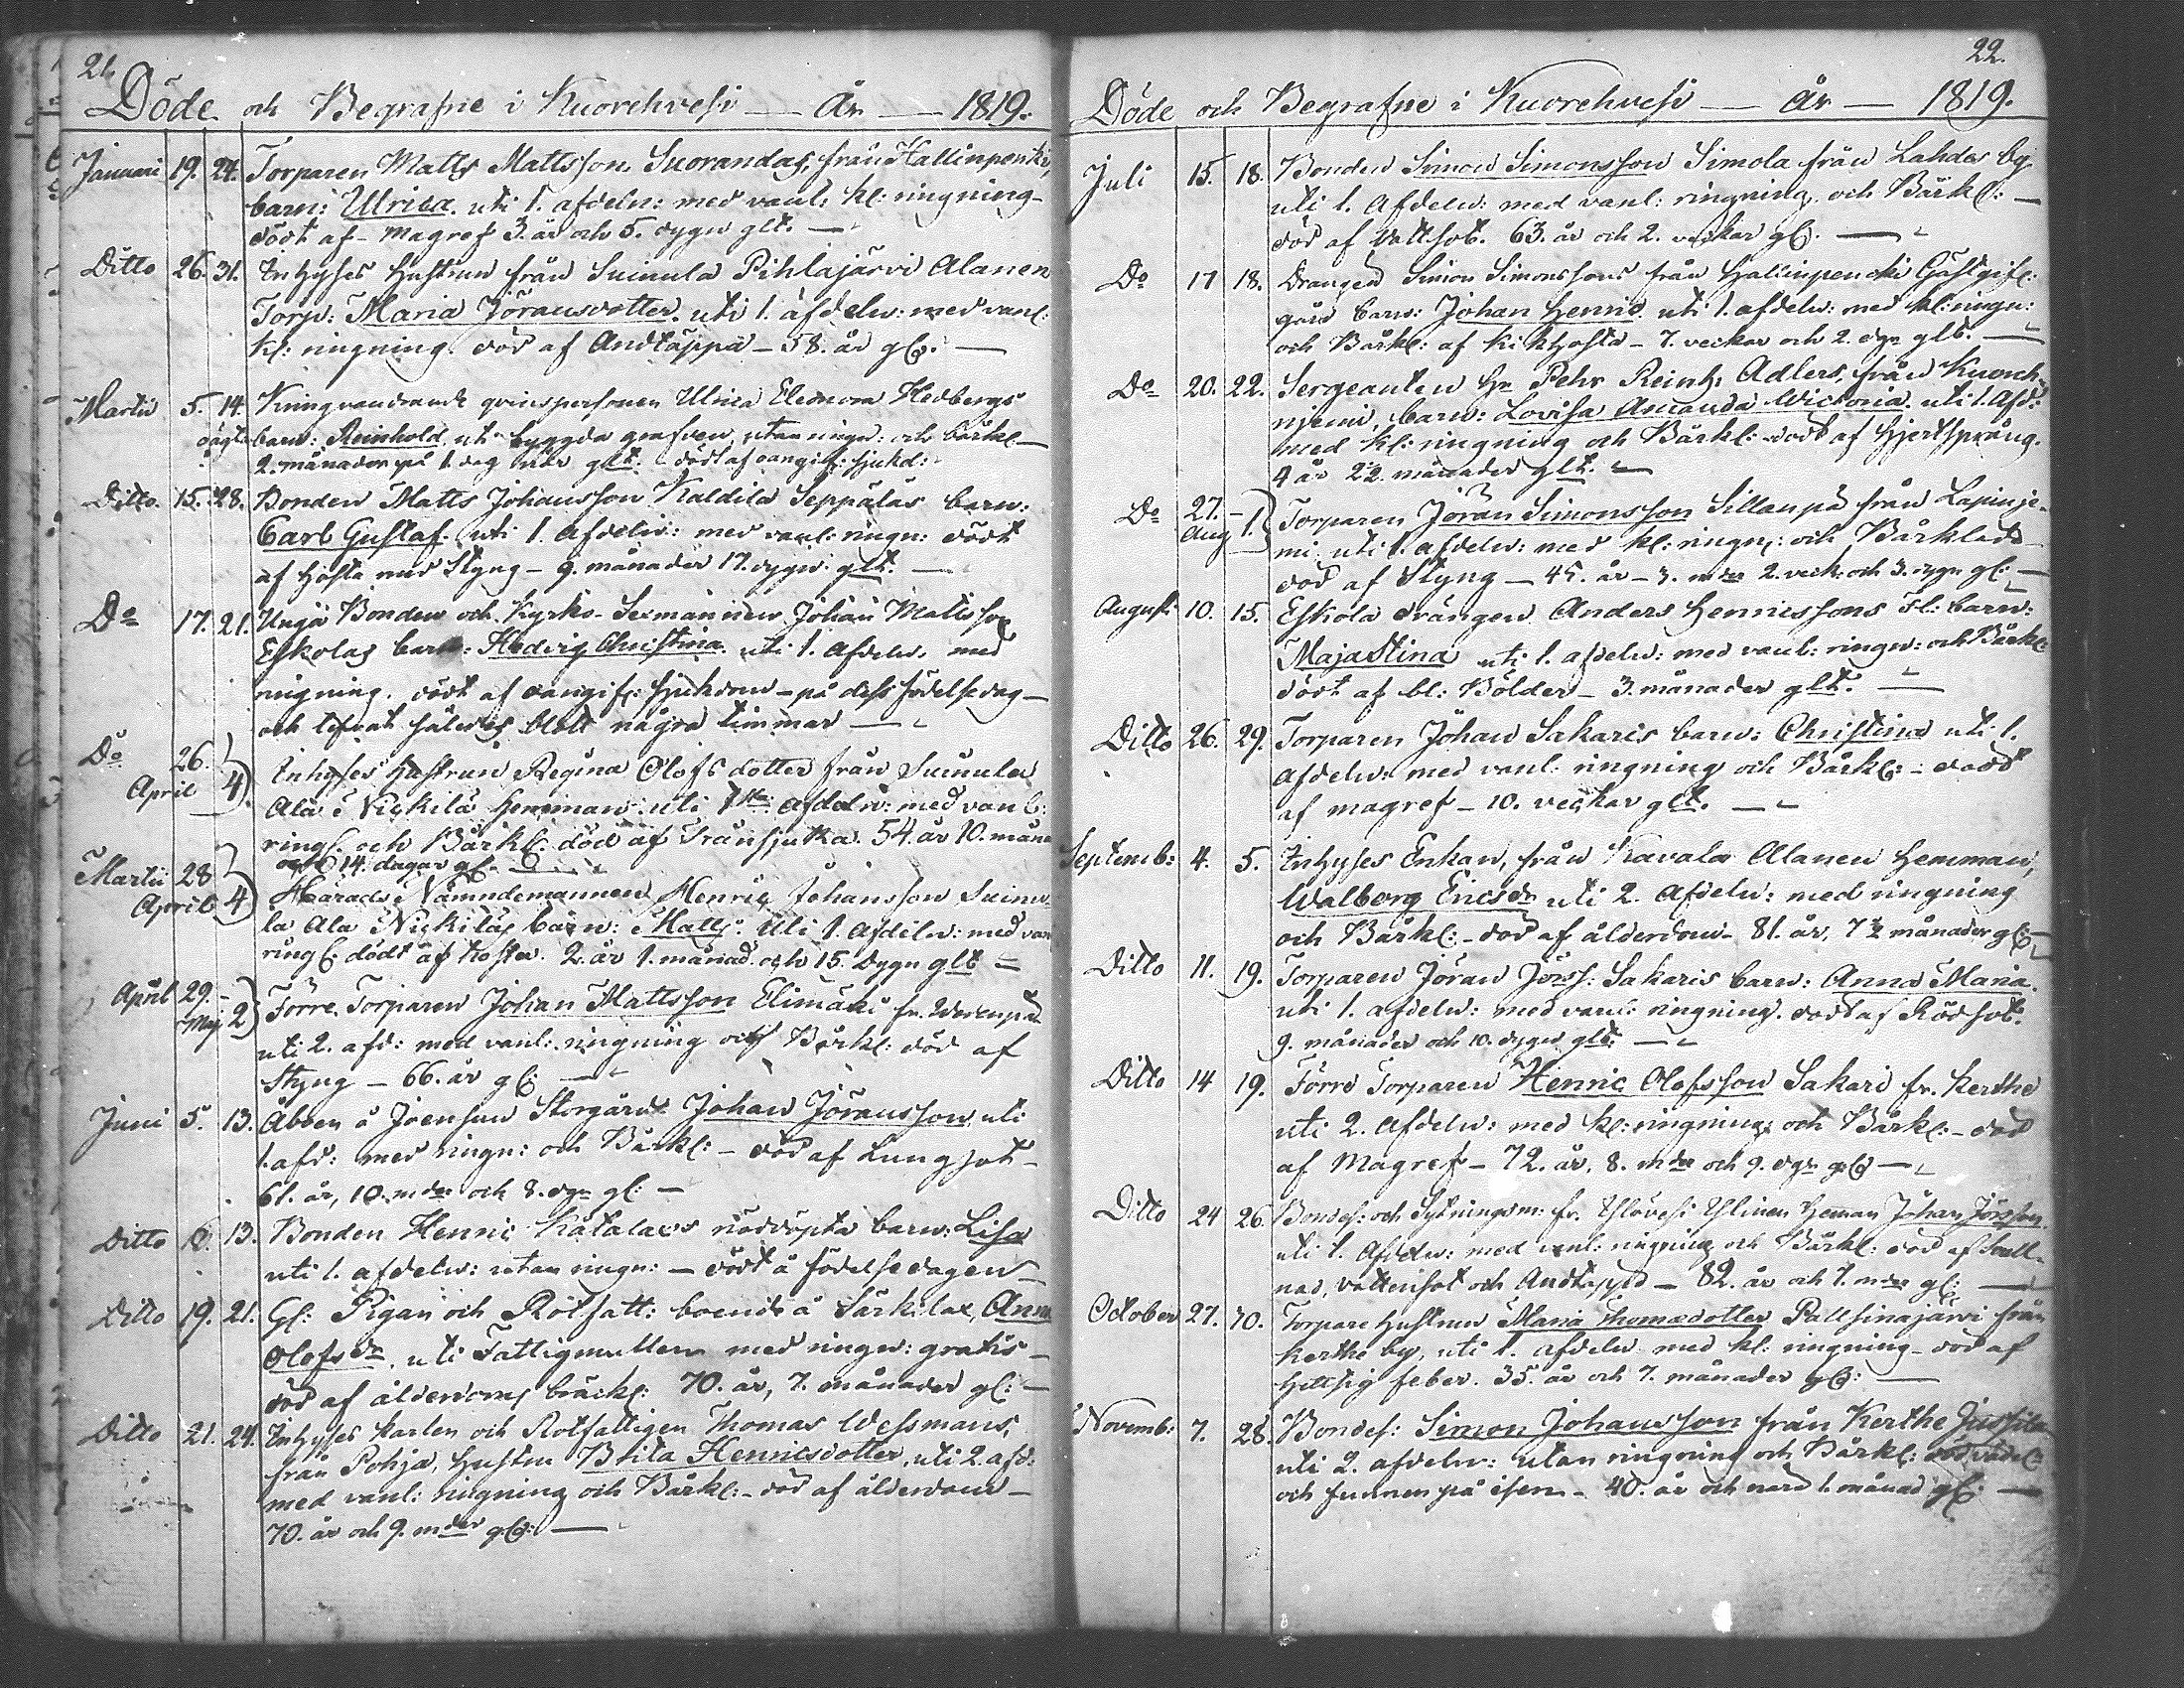 21.
Döde och Begrafne i Kuorehvesi — År — 1819.
Januari 19. 24. Torparen Matts Mattsson Suorandas, från Hallinpenki,
barn: Ulrica. uti 1. afdeln: med vanl: kl: ringning
dödt af Magref 3. år och 5. dygn glt. —
Ditto 26. 31. Inhyses Hustrun från Suinula Pihlajärvi Alanen
Torp: Maria Jöransdotter. uti 1. afdeln: med vanl:
kl: ringning. död af Andtäppa – 58. år gl: —
Martii 5. 14. Kringvandrande qvinspersonen Ulrica Eleonora Hedbergs
barn: Reinhold, uti byggda grafven, utan ringn: och bårkl —
2. månader på 1. dag när glt. – dödt af oangif: sjukd:
Ditto. 15. 28. Bonden Matts Johansson Kaldila Seppäläs barn:
Carl Gustaf. uti 1. Afdeln: med vanl: ringn: dödt
af Hosta med Styng – 9. månader 17. dygn glt. —
Do 17. 21. Unga Bonden och Kyrko-Sexmannen Johan Mattsson
Eskolas barn: Hedvig Christina. uti 1. Afdeln: med
ringning. dödt af oangif: sjukdom – på dess födelsedag –
och lefvat således blott några timmar —
Do 26. April 4) Inhyses Hustrun Regina Olofsdotter från Suinula
Ala Nickilä Hemman: uti 1sta Afdeln: med vanl:
ringl. och Bårkl: död af Trånsjuka. 54 år 10. mån
och 14. dagar gl. —
Martii 28 April 4) Härads Nämndemannen Henric Johansson Suinu-
la Ala Nickilas barn: Matts. Uti 1. Afdeln: med van
ringl: dödt af hosta. 2. år 1. månad. och 15. Dygn glt —
April 29. – Maj 2) Förre Torparen Johan Mattsson Elimäki fr.
uti 2. afd: med vanl: ringning och Bårkl: död af
Styng – 66. år gl: —
Juni 5. 13. Åboen å Joensuu Storgård Johan Jöransson uti
1. afd: med ringn: och Bårkl: – död af Lungsot –
61. år, 10. mder och 8. dgr gl: —
Ditto 6. 13. Bonden Henric Katalas nöddöpta barn: Lisa
uti 1. afdeln: utan ringn: – dödt å födelsedagen –
Ditto 19. 21. Gl: Pigan och Rotfatt: boende å Särkilax, Anna
Olofsdr, uti Fattigmullen med ringn: gratis –
död af ålderdoms bräckl: 70. år, 7. månader gl: —
Ditto 21. 24. Inhyses karlen och Rotfattigen Thomas Wessmans,
från Pohja, Hustru Brita Henricsdotter, uti 2. afd:
med vanl: ringning och Bårkl: – död af ålderdom –
70. år och 9. mder gl: —
22.
Döde och Begrafne i Kuorehvesi — År — 1819.
Juli 15. 18. Bonden Simon Simonsson Simola från Lahdes by
uti 1. Afdeln: med vanl: ringning. och Bårkl: —
död af Vattsot. 63. år och 2. veckor gl. —
Do 17 18. Drängen Simon Simonssons från Hallinpencki Gästgif:
gård barn: Johan Henric. uti 1. afdeln: med kl: ringn:
och Bårkl: af Kikhosta – 7. veckor och 2. dgr glt. —
Do 20. 22. Sergeanten Hr Pehr Reinh: Adlers, från Kuoreh-
niemi, barn: Lovisa Amanda Wictoria. uti 1. Afd:
med kl: ringning och Bårkl: dödt af Hjertsprång.
4 år 2½. månader glt. —
Do 27. – Aug 1.) Torparen Jöran Simonsson Sillanpä från Lapinje-
mi uti 1. afdeln: med kl: ringn: och Bårkläde
död af Styng – 45. år – 3. mder 2. veck: och 3. dygn gl: —
Augusti 10. 15. Eskola drängen Anders Henricssons Fl: barn:
Maja Stina uti 1. afdeln: med vanl: ringn: och Bårkl
dödt af bl: Bölder – 3. månader glt. —
Ditto 26. 29. Torparen Johan Sakaris barn: Christina uti 1.
Afdeln: med vanl: ringning och Bårkl: – dödt
af magref – 10. veckor glt. —
Septemb: 4. 5. Inhyses Enkan, från Kavala Alanen Hemman,
Walborg Ericsdr uti 2. Afdeln: med ringning
och Bårkl: – död af ålderdom – 81. år, 7½ månader gl: —
Ditto 11. 19. Torparen Jöran Jörss: Sakaris barn: Anna Maria.
uti 1. afdeln: med vanl: ringning. dödt af Rödsot.
9. månader och 10. dygn glt. —
Ditto 14 19. Förre Torparen Henric Olofsson Sakari fr. Kerthe
uti 2. Afdeln: med kl: ringning och Bårkl: – död
af Magref – 72. år, 8. mder och 9. dgr gl —
Ditto 24 26. Bondes: och Sytningsm: fr. Hemman Johan Jörsson
uti 1. Afdeln: med vanl: ringning och Bårkl: död af Svull-
nad, vattensot och Andtäppa – 82. år och 7. mder gl: —
October 27. 30. Torpare Hustrun Maria Thomasdotter Pallsinajärvi från
Kerthe by, uti 1. afdeln med kl: ringning – död af
Hettsig feber. 35. år och 7. månader gl: —
Novemb: 7. 28. Bondes: Simon Johansson från Kerthe Jussila
uti 2. afdeln: utan ringning och Bårkl:
och funnen på isen – 40. år och nära 1. månad gl. —